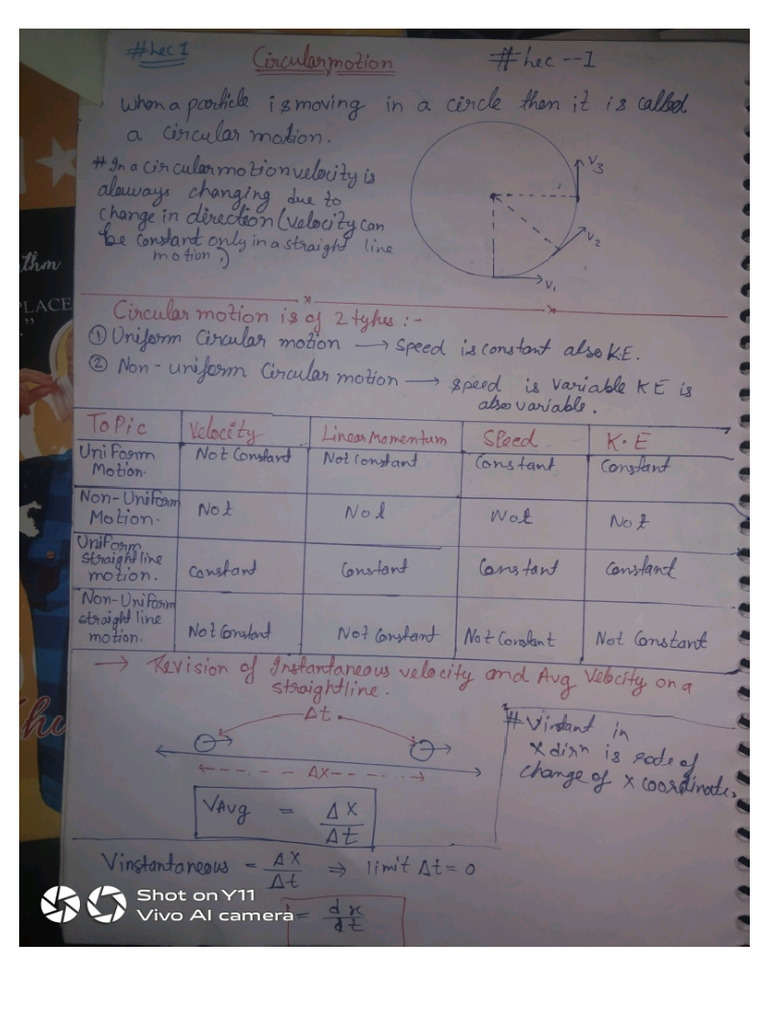 #Lec 1
Circular motion
#Lec --1
When a particle is moving in a circle then it is called
a circular motion.
# In a circular motion velocity is
alaways changing due to
change in direction (velocity can
be constant only in a straight line
motion.)
V3
V2
V1
Circular motion is of 2 types :-
① Uniform Circular motion → Speed is constant also K.E.
② Non-uniform Circular motion → speed is variable KE is
also variable.
Topic Velocity Linear Momentum Speed K.E
Uniform Motion. Not Constant Not Constant Constant Constant
Non-Uniform Motion. Not Not Not Not
Uniform straight line motion. Constant Constant Constant Constant
Non-Uniform straight line motion. Not Constant Not Constant Not Constant Not Constant
→ Revision of Instantaneous velocity and Avg Velocity on a
straight line.
Δt
ΔX
VAvg = ΔX/Δt
# Vinstant in
X dirn is rate of
change of X coordinate.
Vinstantaneous = ΔX/Δt ⇒ limit Δt = 0
= dx/dt
thm
PLACE
"
Shot on Y11
Vivo AI camera